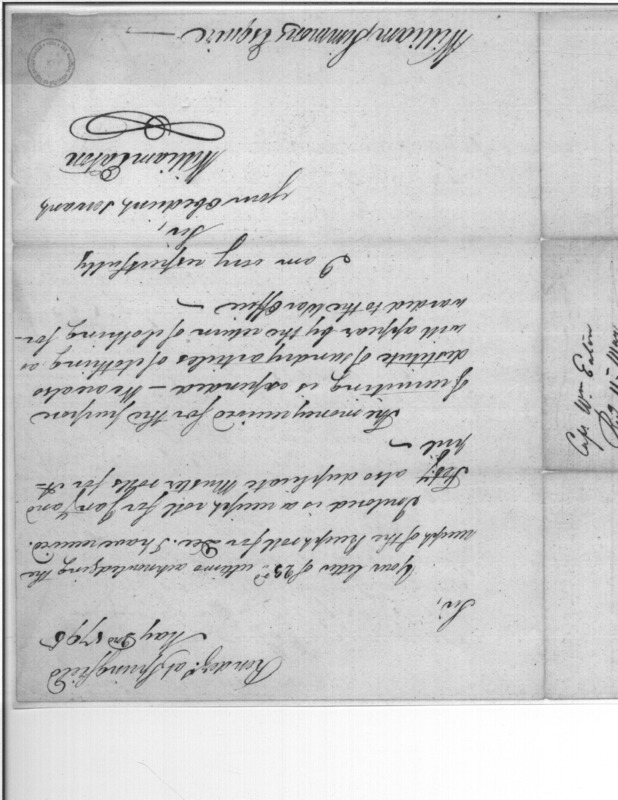 Rendezs. at Springfield
May 2nd 1795
Sir,
Your letter of 23d. ultimo acknowledging the
receipt of the Receipt roll for Dec. I have received.
Inclosed is a receipt roll for Jany. and
Feby. also duplicate Muster rolls for A-
pril —
The money received for the purpose
of recruiting is expended — We are also
destitute of sundry articles of clothing, as
will appear by the return of clothing for-
warded to the War Office —
I am very respectfully
Sir,
your Obedient Servant
William Eaton
William Simmons Esquire —
Capt Wm Eaton